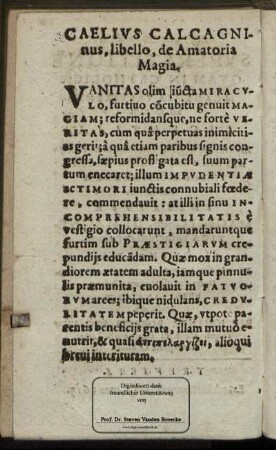 CAELIVS CALCAGNI
nus, libello, de Amatoria
Magia.
VANITAS olim iũcta MIRACV
LO, furtiuo cõcubitu genuit MA-
GIAM; reformidansque, ne fortè VE
RITAS, cum quâ perpetuas inimiciti
as geri; à quâ etiam paribus signis con
gressa, sæpius profligata est, suum par
tum enecaret; illum IMPVDENTIÆ
ac TIMORI iunctis connubiali fœde
re, commendauit: at illi in sinu IN
COMPREHENSIBILITATIS è
vestigio collocarunt, mandaruntque
furtim sub PRÆSTIGIARVM cre
pundijs educãdam. Quæ mox in gran
diorem ætatem adulta, iamque pinnu
lis præmunita, euolauit in FATVO
RVM arces; ibique nidulans, CREDV
LITATEM peperit. Quæ, vtpote pa
rentis beneficijs grata, illam mutuò e
nutrir, & quasi alioqui
breui interituram.
Digitalisiert dank
finanzieller Unterstützung
von
Prof. Dr. Steven Vanden Broecke